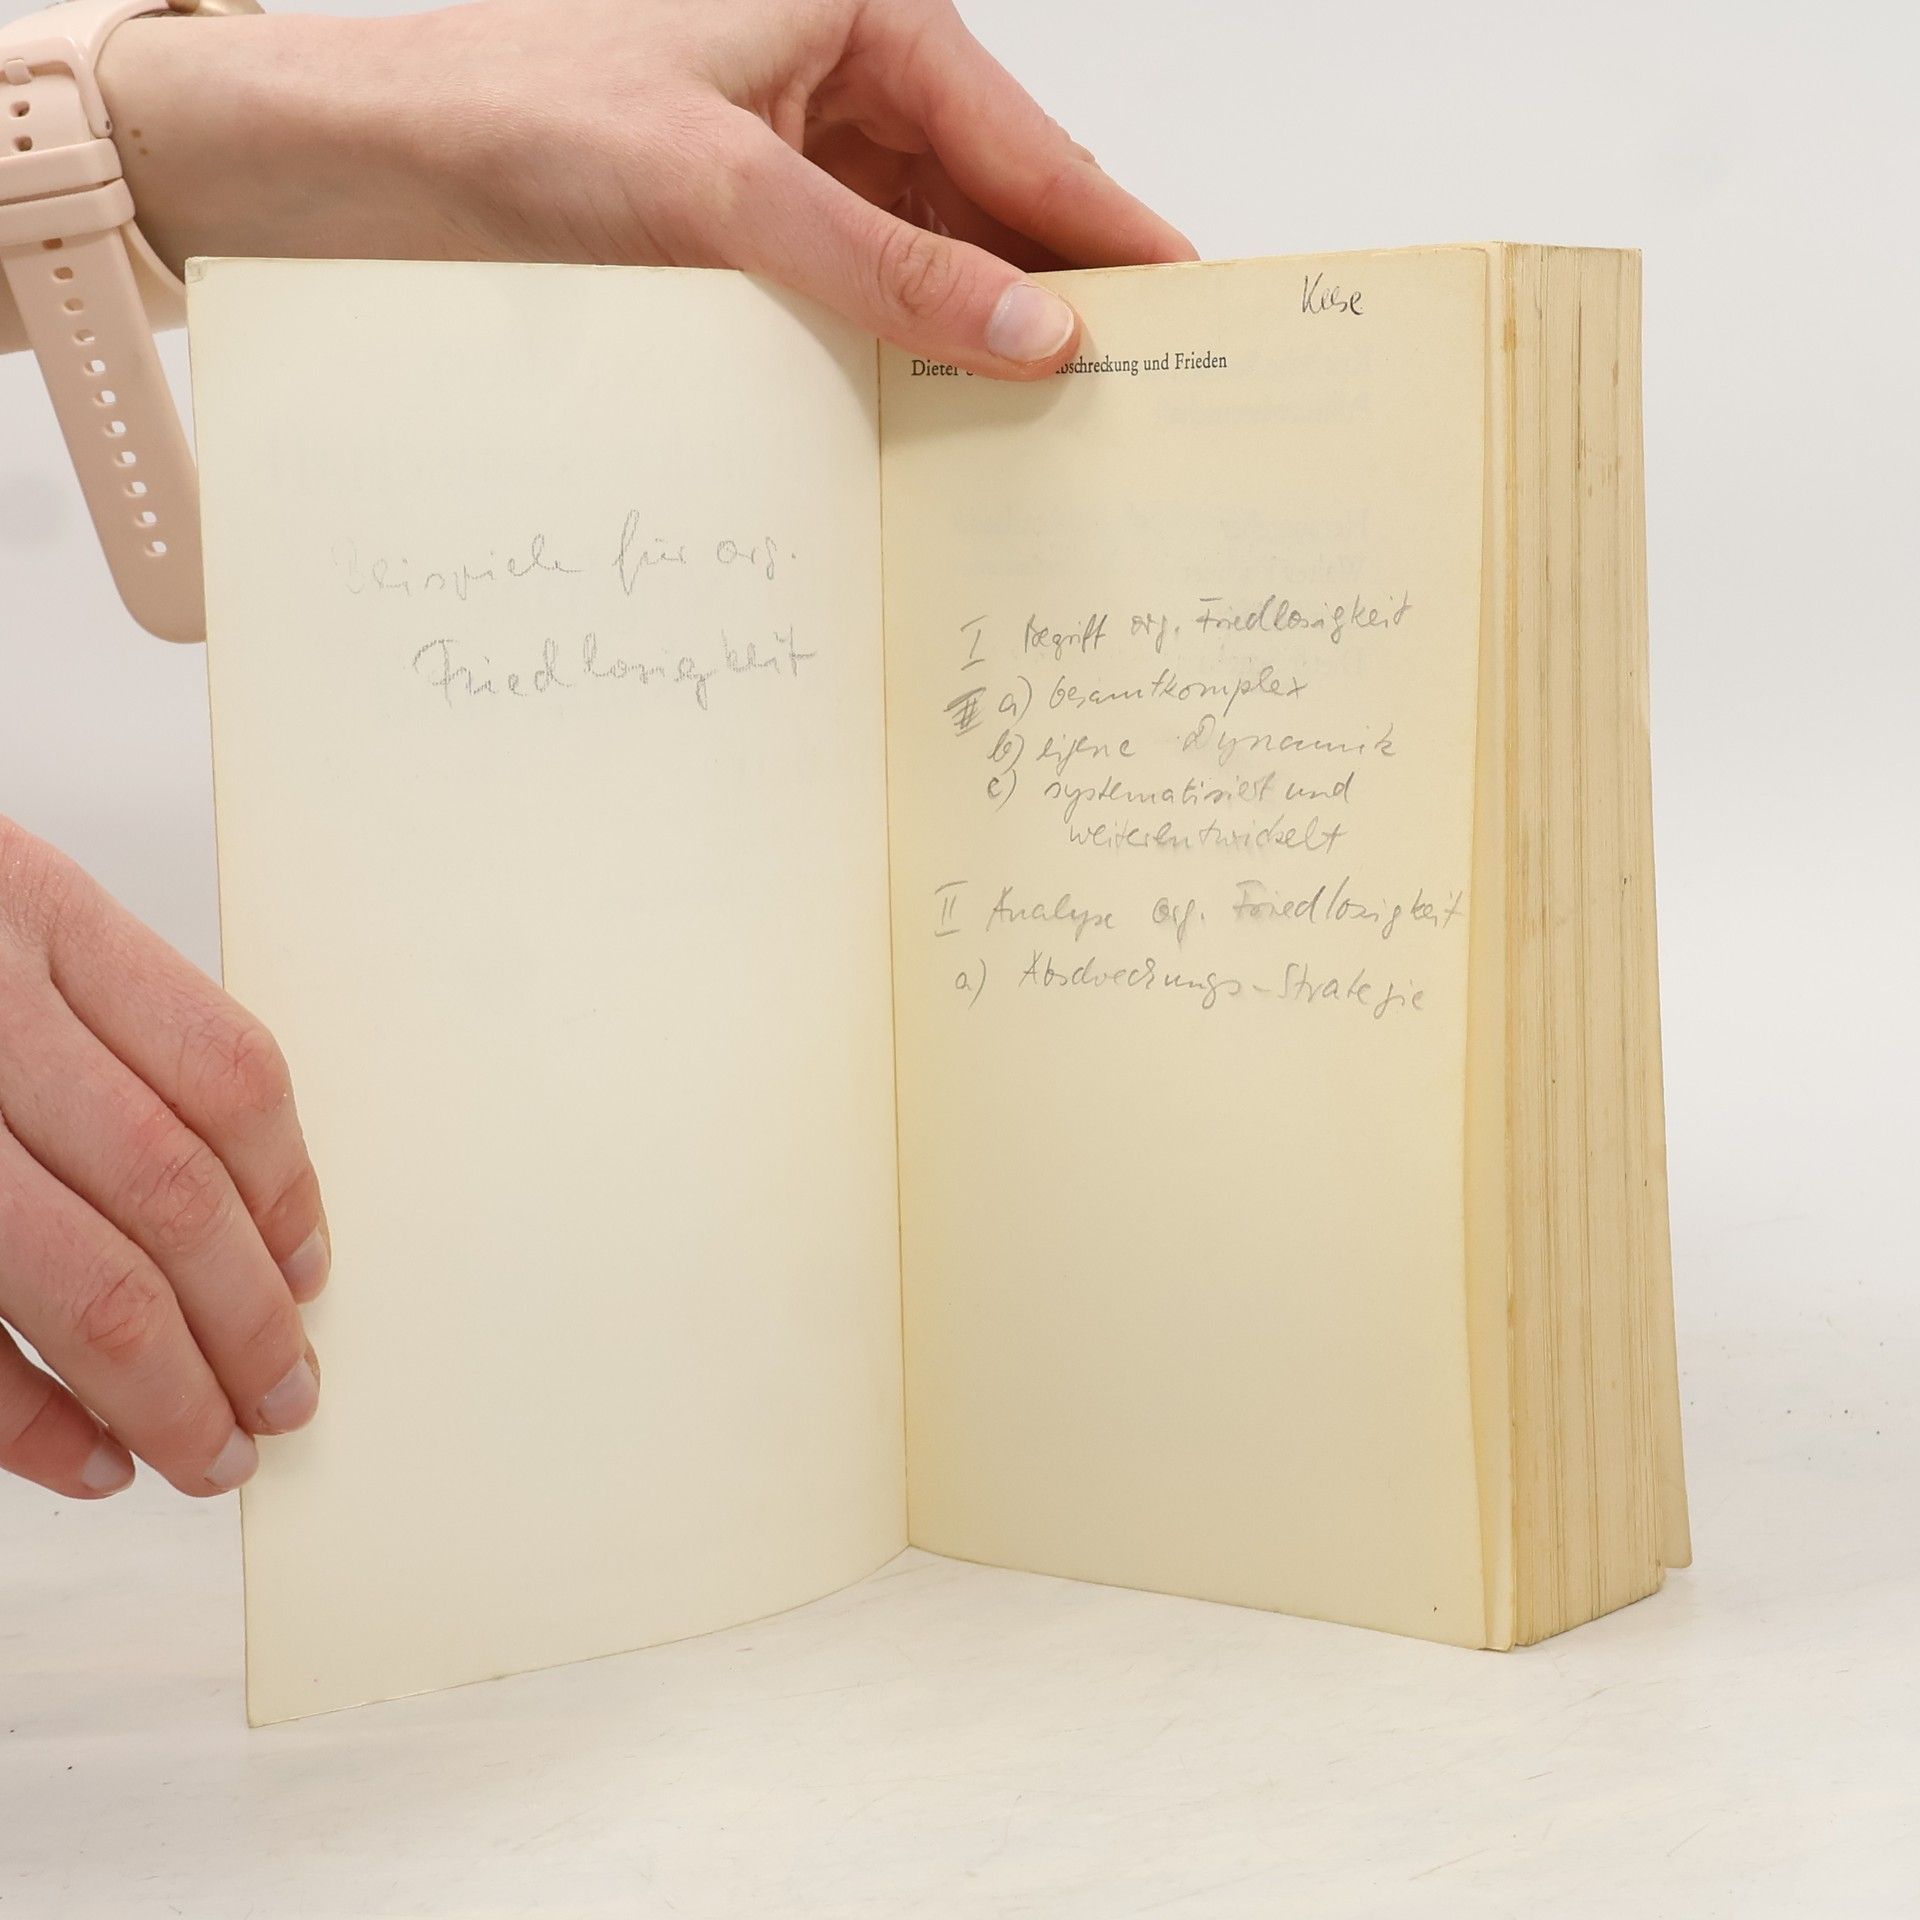 Beispiele für org.
Friedlosigkeit
Keese
Dieter bschreckung und Frieden
I Begriff org. Friedlosigkeit
a) Gesamtkomplex
b) eigene Dynamik
c) systematisiert und
weiterentwickelt
II Analyse org. Friedlosigkeit
a) Abschreckungs-Strategie